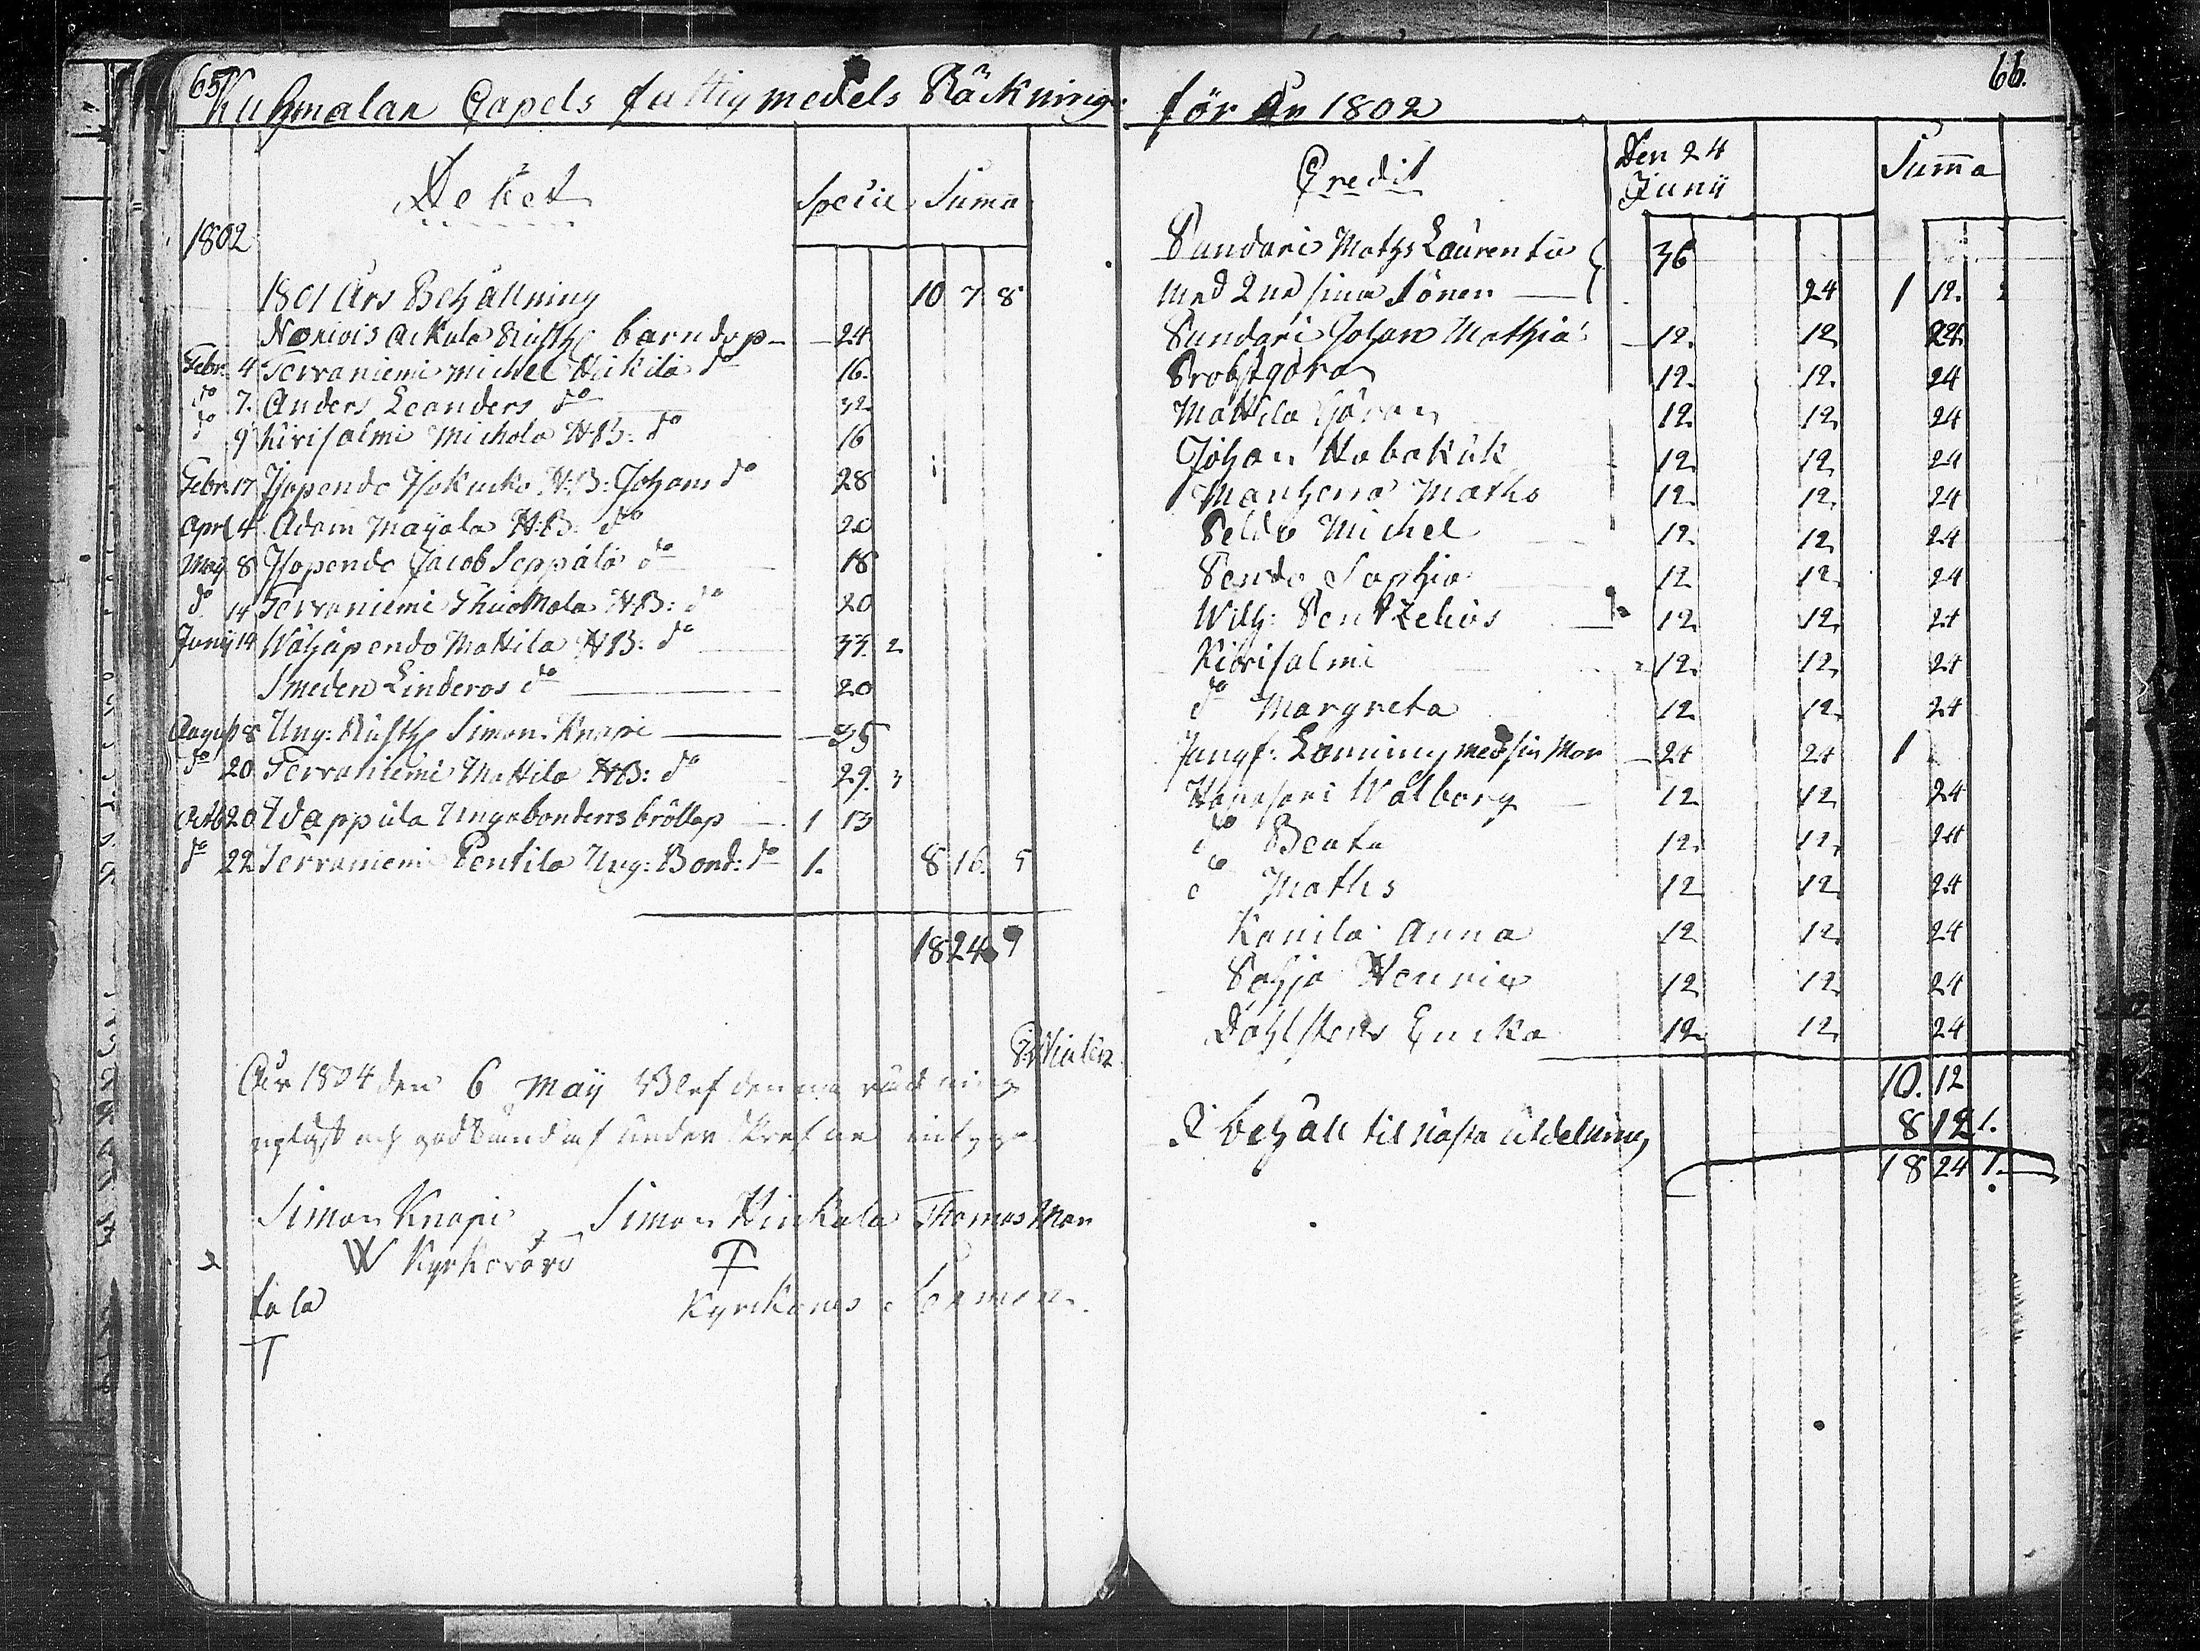 65
Kuhmalan Capels fattigmedels Räkning
Debet
Specie Summa
1802
1801 Års Behållning 10 7 8
barndop 24
Febr. 4 Terraniemi Michel Hickilä do 16.
do 7. Anders Leanders do 32
do 9 Kirisalmi Michola HB: do 16
Febr. 17 Isopendo Isokucko H:B: Johans do 28
Aprl 4 Adam Mayala H:B: do 20
May 8 Isopendo Jacob Seppälä do 18
do 14 Terraniemi HB: do 20
Junij 14 Wähäpendo Mattila HB: do 33. 2
Smeden Linderos do 20
August 8 Ung: Rusth Simon Knapi 35
do 20 Terraniemi Mattila HB: do 29. 3
Octb 20 Wappula Ungabondens bröllop 1 13
do 22 Terraniemi Pentila Ung: Bond: do 1. 8 16. 5
18 24 9
År 1804 den 6 Maij Blef denna räkning
upläst och godkänd af
Simon Knapi, Simon Hinkala Thomas Man
W Kyrkovärd T
tala Kyrckones
T
66.
för År 1802
Credit
Den 24 Junij Summa
Sundari Maths Laurentii 36
med 2ne sina Söner 24 1 12.
Sundari Johan Mathiæ 12. 12 24
12. 12. 24
Mattila Göran 12. 12. 24
Johan Habakuk 12. 12. 24
Manherra Maths 12. 12. 24
Peldo Michel 12. 12. 24
Pendo Sophia 12 12. 24
Wilh: 12. 12. 24
Kirisalmi 12. 12. 24
do Margreta 12. 12. 24
Jungf: med sin Mor 24 24 1
Walborg 12 12 24
do Beata 12. 12. 24
do Maths 12 12. 24
Kanila Anna 12 12. 24
Pohja Henric 12 12. 24
Dahlstens 12. 12. 24
10. 12
I behåll til nästa utdelning 8 12 1.
18 24 1.